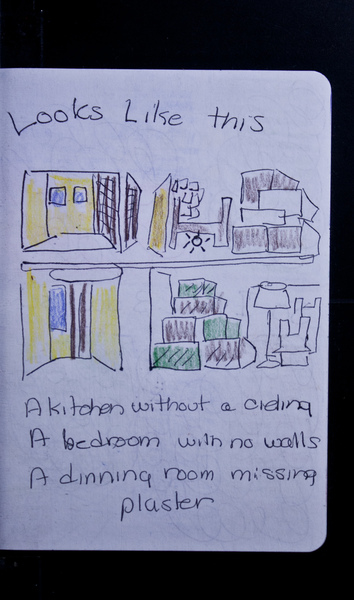 Looks Like this
A kitchen without a cieling
A bedroom with no walls
A dinning room missing
plaster